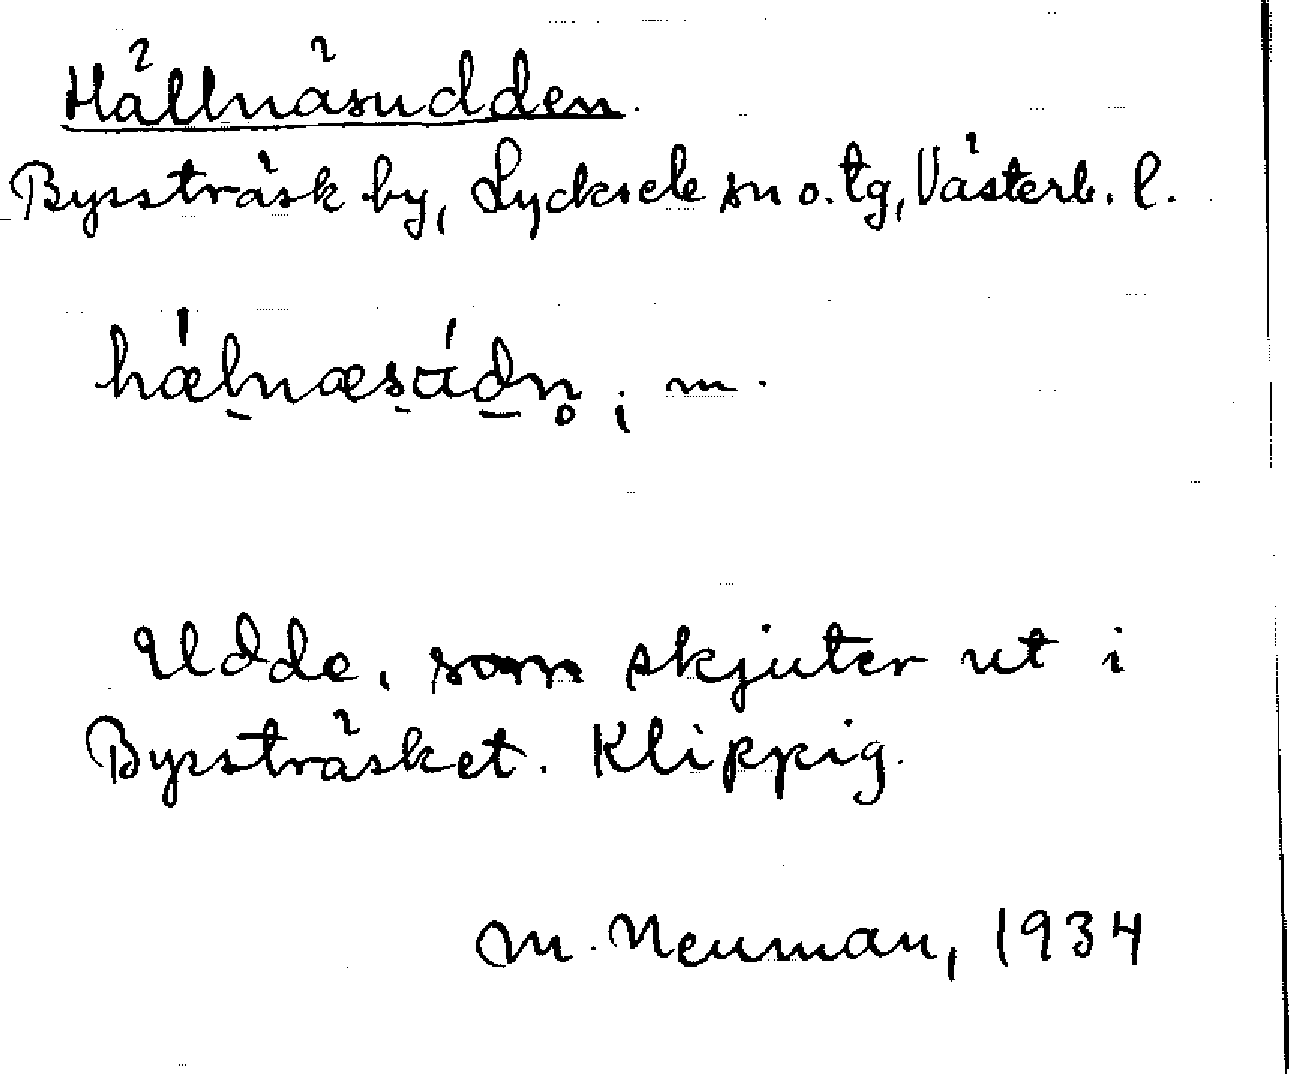 Hällnäsudden.
Byssträsk by, Lycksele sn o. tg, Västerb. l.
hælnæsúdn̥, m.
Udde, som skjuter ut i
Byssträsket. Klippig.
M. Neuman, 1934